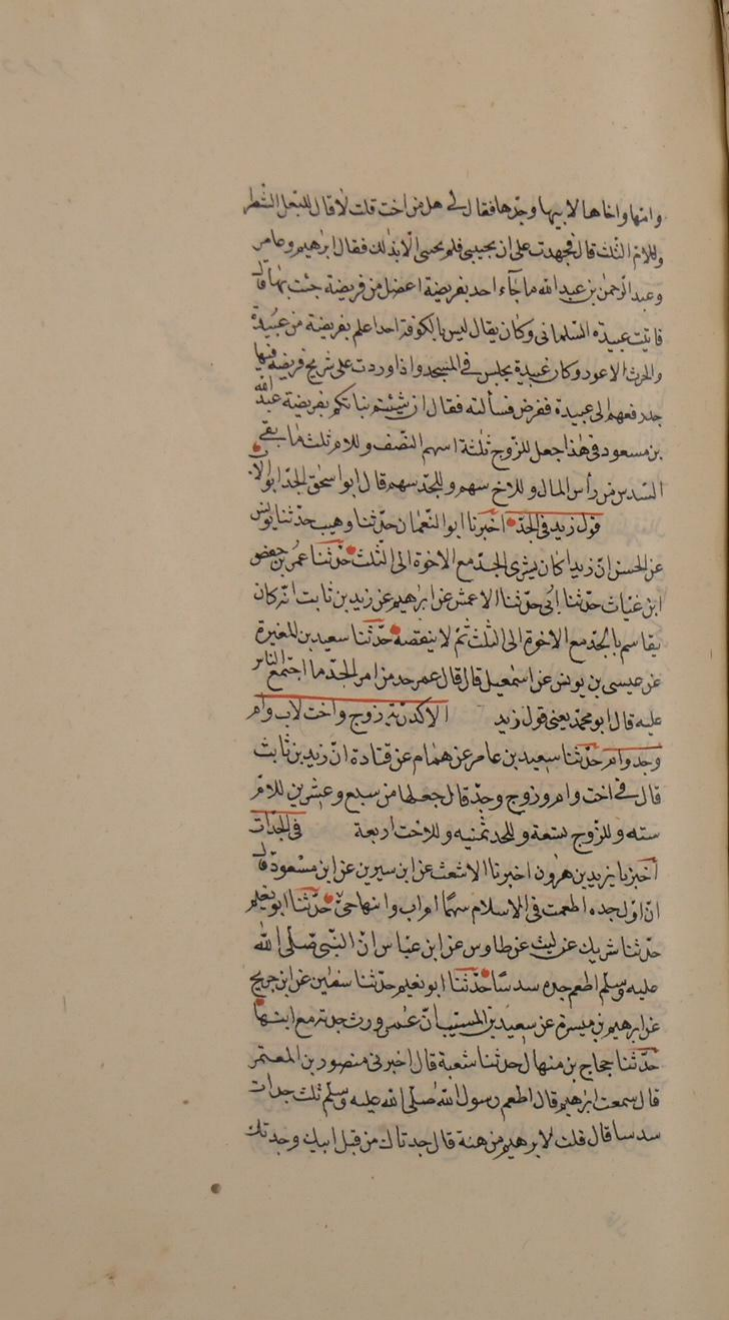 وامها واخاها لابيها وجدها فقال لي هل من اخت قلت لا قال للبعل الشطر
وللام الثلث قال فجهدت على ان يجيبني فلم يجبني الا بذلك فقال ابرهيم وعامر
وعبد الرحمن بن عبد الله ما جآء احد بفريضة اعضل من فريضة جئت بها قال
فاتيت عبيدة السلماني وكان يقال ليس بالكوفة احد اعلم بفريضة من عبيدة
والحرث الاعور وكان عبيدة يجلس في المسجد واذا وردت على شريح فريضة فيها
جد رفعهم الى عبيدة ففرض فسألته فقال ان شئتم نباتكم بفريضة عبد الله
بن مسعود في هذا جعل للزوج ثلثة اسهم النصف وللام ثلث ما بقي
السدس من رأس المال وللاخ سهم وللجد سهم قال ابو اسحق الجد ابو الاب
قول زيد في الجد اخبرنا ابو النعمان حدثنا وهيب حدثنا يونس
عن الحسن ان زيدا كان يشرك الجد مع الاخوة الى الثلث حدثنا عمر بن حفص
ابن غياث حدثنا ابي حدثنا الاعمش عن ابرهيم عن زيد بن ثابت انه كان
يقاسم بالجد مع الاخوة الى الثلث ثم لا ينقصه حدثنا سعيد بن المغيرة
عن عيسى بن يونس عن اسمعيل قال قال عمر خذ من امر الجد ما اجتمع الناس
عليه قال ابو محمد يعني قول زيد الاكدرية زوج واخت لاب وام
وجد وام حدثنا سعيد بن عامر عن همام عن قتادة ان زيد بن ثابت
قال في اخت وام وزوج وجد قال جعلها من سبع وعشرين للام
سته وللزوج تسعة وللجد ثمنيه وللاخت اربعة في الجدات
اخبرنا يزيد بن هرون اخبرنا الاشعث عن ابن سيرين عن ابن مسعود قال
ان اول جده اطعمت في الاسلام سهما ام اب وابنها حي حدثنا ابو نعيم
حدثنا شريك عن ليث عن طاوس عن ابن عباس ان النبي صلى الله
عليه وسلم اطعم جده سدسا حدثنا ابو نعيم حدثنا سفين عن ابن جريج
عن ابرهيم بن ميسرة عن سعيد بن المسيب ان عمر ورث جدة مع ابنها
حدثنا حجاج بن منهال حدثنا شعبة قال اخبرني منصور بن المعتمر
قال سمعت ابرهيم قال اطعم رسول الله صلى الله عليه وسلم ثلث جدات
سدسا قال قلت لابرهيم من هنة قال جدتاك من قبل ابيك وجدتك